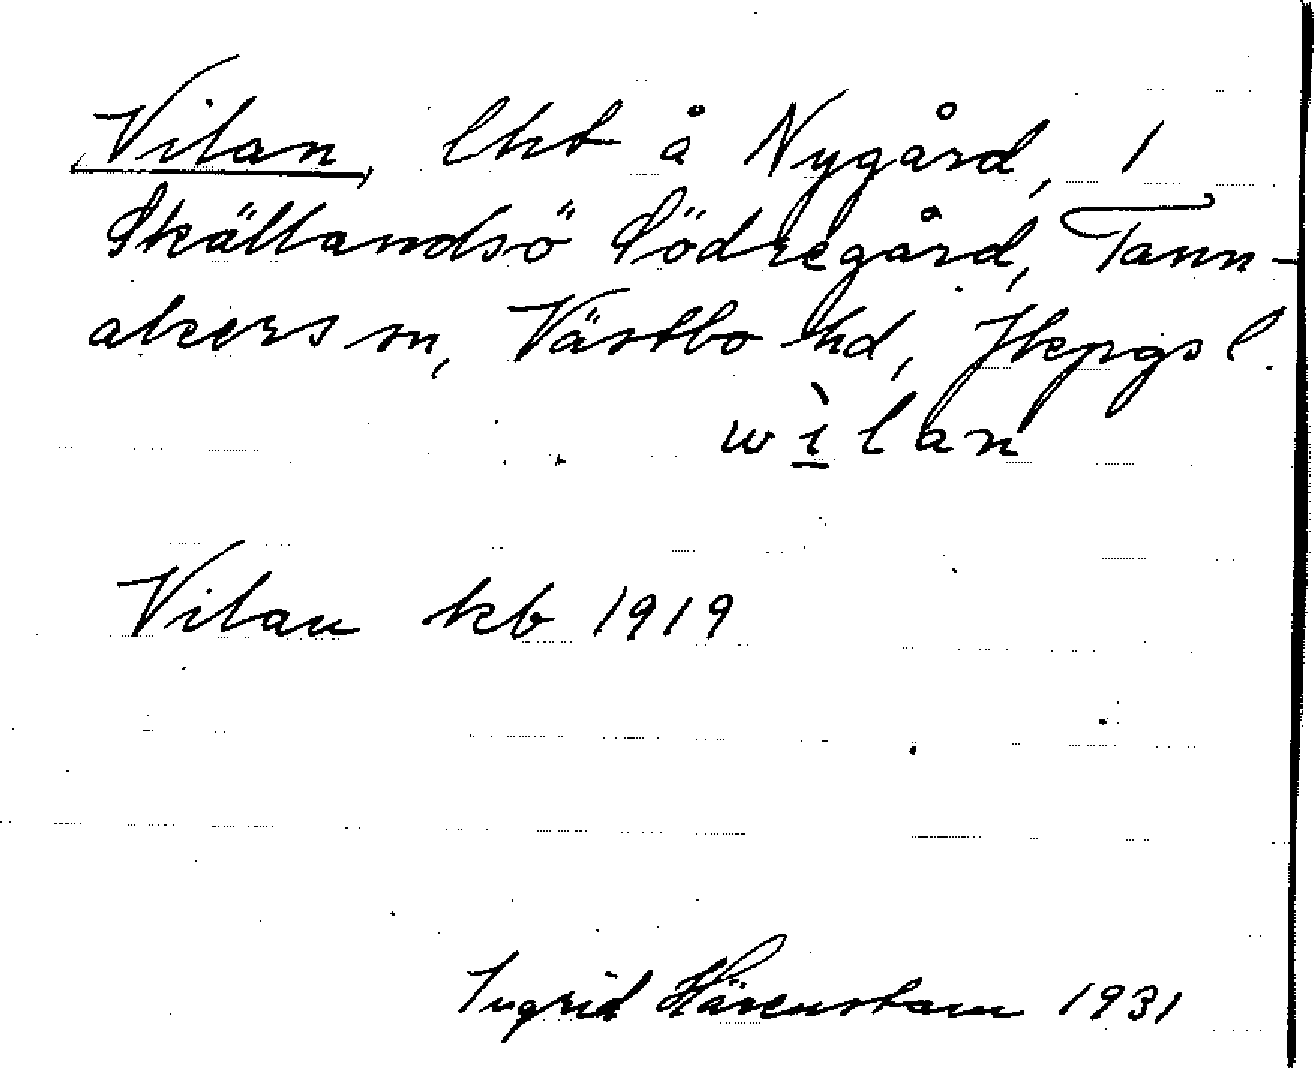 Vilan, lht å Nygård, 1
Skällandsö Södregård, Tann-
akers sn, Västbo hd, Jkpgs l.
wìlan
Vilan kb 1919
Ingrid Härenstam 1931